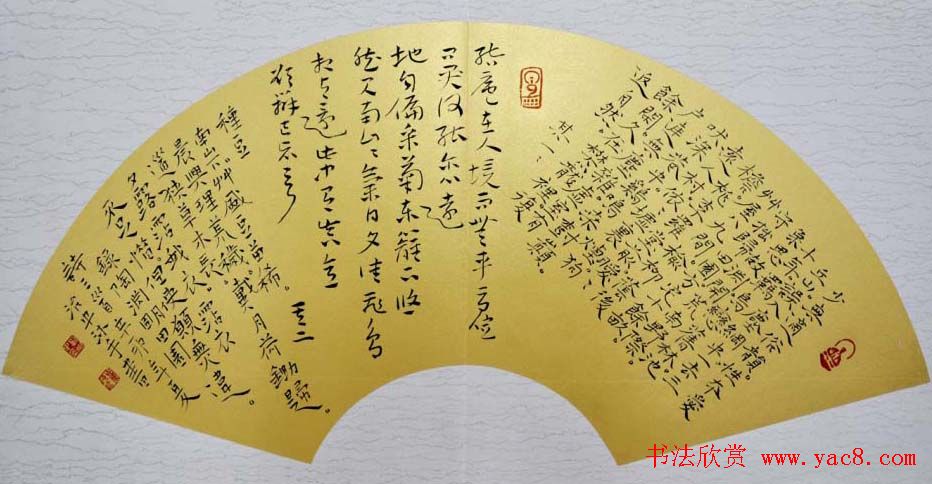 少無適俗韻。性本愛
丘山。誤落塵網中一去三
十年。羈鳥戀舊林池
魚思故淵。開荒南野際。
守拙歸園田。方宅十餘畝。
草屋八九間。榆柳蔭後
檐。桃李羅堂前。曖曖
遠人村。依依墟里煙。狗
吠深巷中。雞鳴桑樹巔。
戶庭無塵雜。虛室有
餘閑。久在樊籠裡。復
返自然。其一
结庐在人境而無車馬喧
问君何能尔心遠
地自偏采菊东籬下悠
然见南山山氣日夕佳飛鳥
相與還此中有真意
欲辨已忘言 其二
種豆
南山下艸盛豆苗稀。
晨興理荒穢。戴月荷鋤歸。
道狹草木長
夕露沾我衣。衣沾
不足惜。但使願無違。
錄陶淵明田園
詩三首
书法欣赏 www.yac8.com